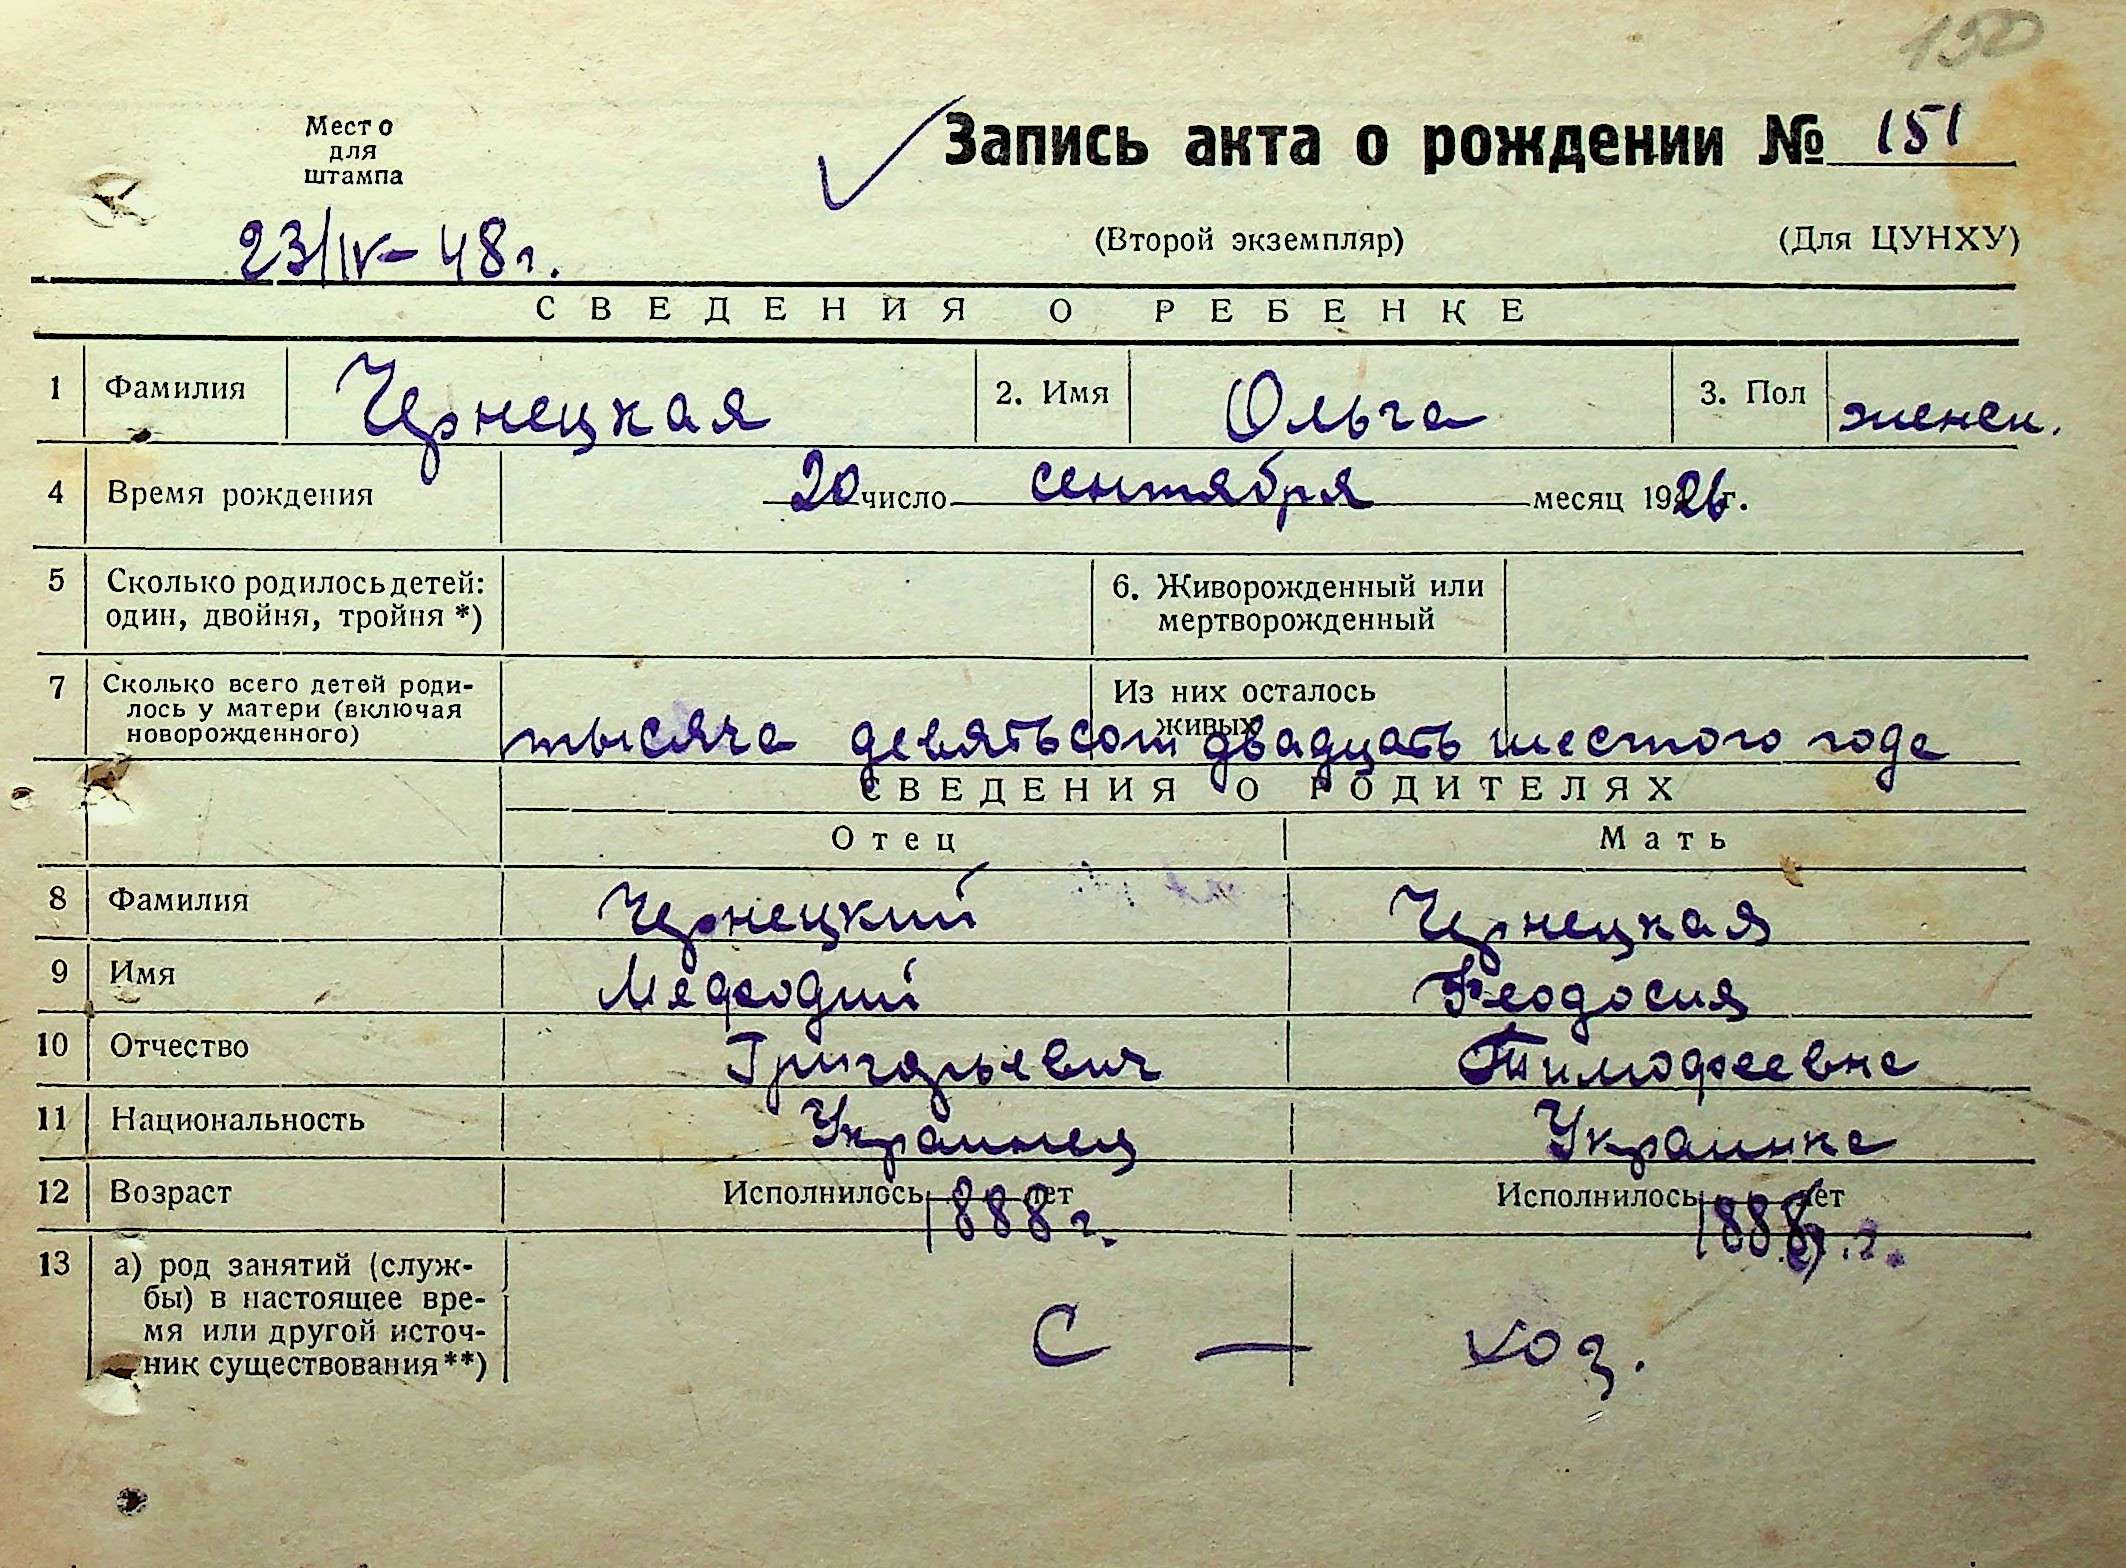 150
Место
для
штампа
Запись акта о рождении № 151
23/IV-48г.
(Второй экземпляр) (Для ЦУНХУ)
СВЕДЕНИЯ О РЕБЕНКЕ
1 Фамилия Чернецкая 2. Имя Ольга 3. Пол женск.
4 Время рождения 20 число сентября месяц 1926 г.
5 Сколько родилось детей: 6. Живорожденный или
один, двойня, тройня *) мертворожденный
7 Сколько всего детей роди- Из них осталось
лось у матери (включая живых
новорожденного)
тысяча девятьсот двадцать шестого года
СВЕДЕНИЯ О РОДИТЕЛЯХ
Отец Мать
8 Фамилия Чернецкий Чернецкая
9 Имя Мефодий Феодосия
10 Отчество Григорьевич Тимофеевна
11 Национальность Украинец Украинка
12 Возраст Исполнилось лет Исполнилось лет
1888 г. 1888 г.
13 а) род занятий (служ-
бы) в настоящее вре-
мя или другой источ-
ник существования **)
С — хоз.